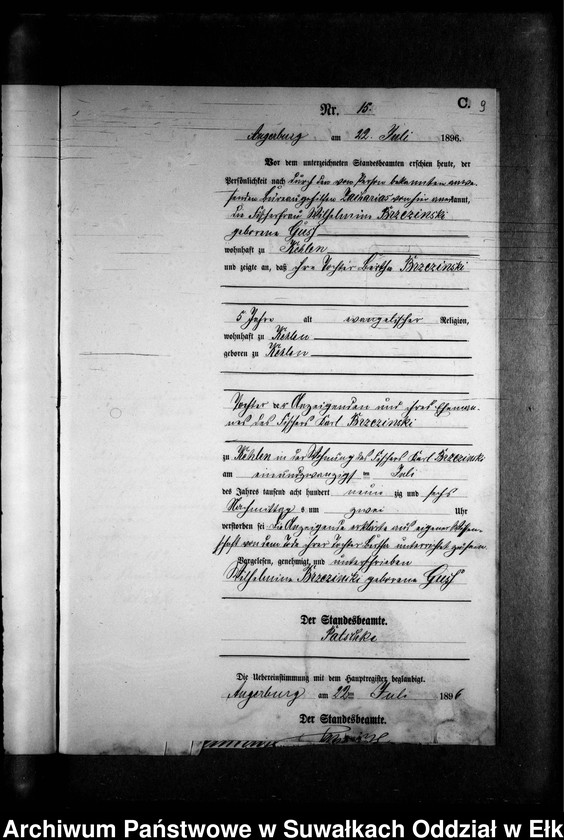 C. 9
Nr. 15.
Angerburg am 22. Juli 1896.
Vor dem unterzeichneten Standesbeamten erschien heute, der
Persönlichkeit nach durch den von Person bekannten anwe-
senden Bureaugehilfen Zacharias von hier anerkannt,
die Fischerfrau Wilhelmine Brzezinski
geborene
wohnhaft zu Kehlen
und zeigte an, daß ihre Tochter Bertha Brzezinski
5 Jahre alt evangelischer Religion,
wohnhaft zu Kehlen
geboren zu Kehlen
Tochter der Anzeigenden und ihres Eheman-
nes des Fischers Karl Brzezinski
zu Kehlen in der Wohnung des Fischers Karl Brzezinski
am einundzwanzigsten Juli
des Jahres tausend acht hundert neun zig und sechs
Nachmittags um zwei Uhr
verstorben sei Die Anzeigende erklärte aus eigener Wissen-
schaft von dem Tode ihrer Tochter Bertha unterrichtet zu sein
Vorgelesen, genehmigt und unterschrieben
Wilhelmine Brzezinski geborene
Der Standesbeamte.
Die Uebereinstimmung mit dem Hauptregister beglaubigt.
Angerburg am 22ten Juli 1896
Der Standesbeamte.
Archiwum Państwowe w Suwałkach Oddział w Ełk